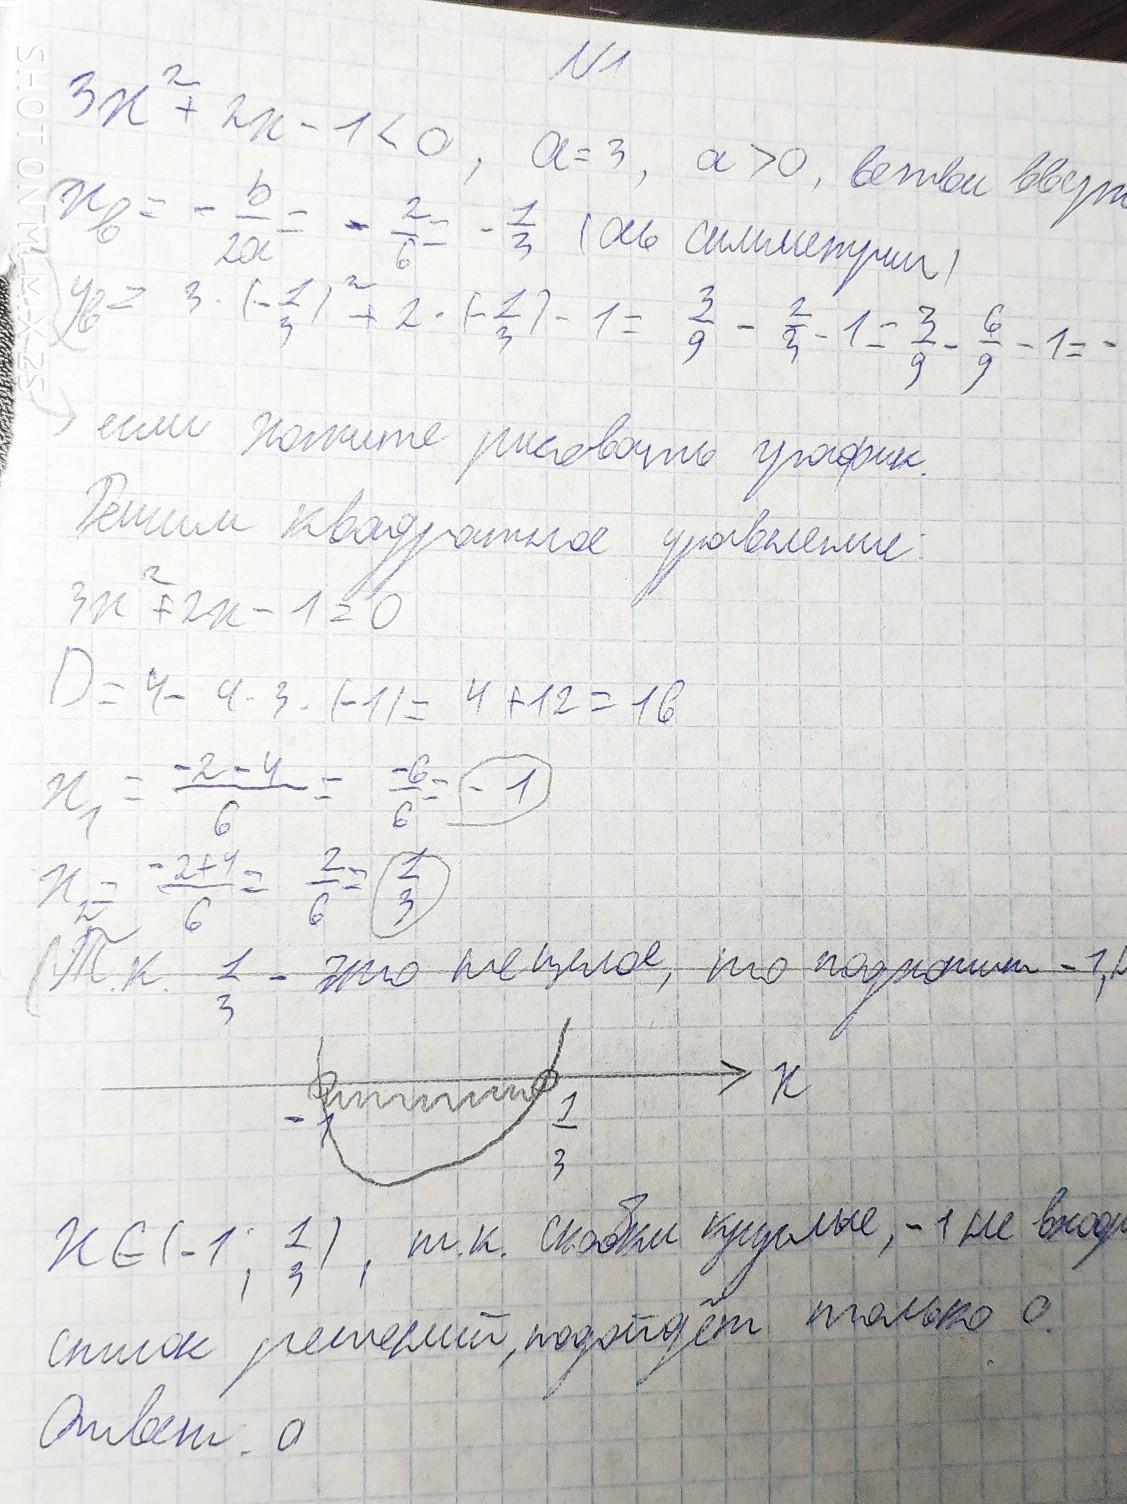 N1
3x² + 2x - 1 < 0, a = 3, a > 0, ветви вверх
x_в = - b/2a = - 2/6 = - 1/3 (ось симметрии)
y_в = 3 · (-1/3)² + 2 · (-1/3) - 1 = 3/9 - 2/3 - 1 = 3/9 - 6/9 - 1 = -
если хотите рисовать график.
Решим квадратное уравнение:
3x² + 2x - 1 = 0
D = 4 - 4 · 3 · (-1) = 4 + 12 = 16
x₁ = -2-4/6 = -6/6 = -1
x₂ = -2+4/6 = 2/6 = 1/3
(Т.к. 1/3 - это не целое, то подходит -1,
-1 1/3 x
x ∈ (-1; 1/3), т.к. скобки круглые, -1 не входи
список решений, подойдёт только 0.
Ответ: 0
SHOT ON MI MIX 2S